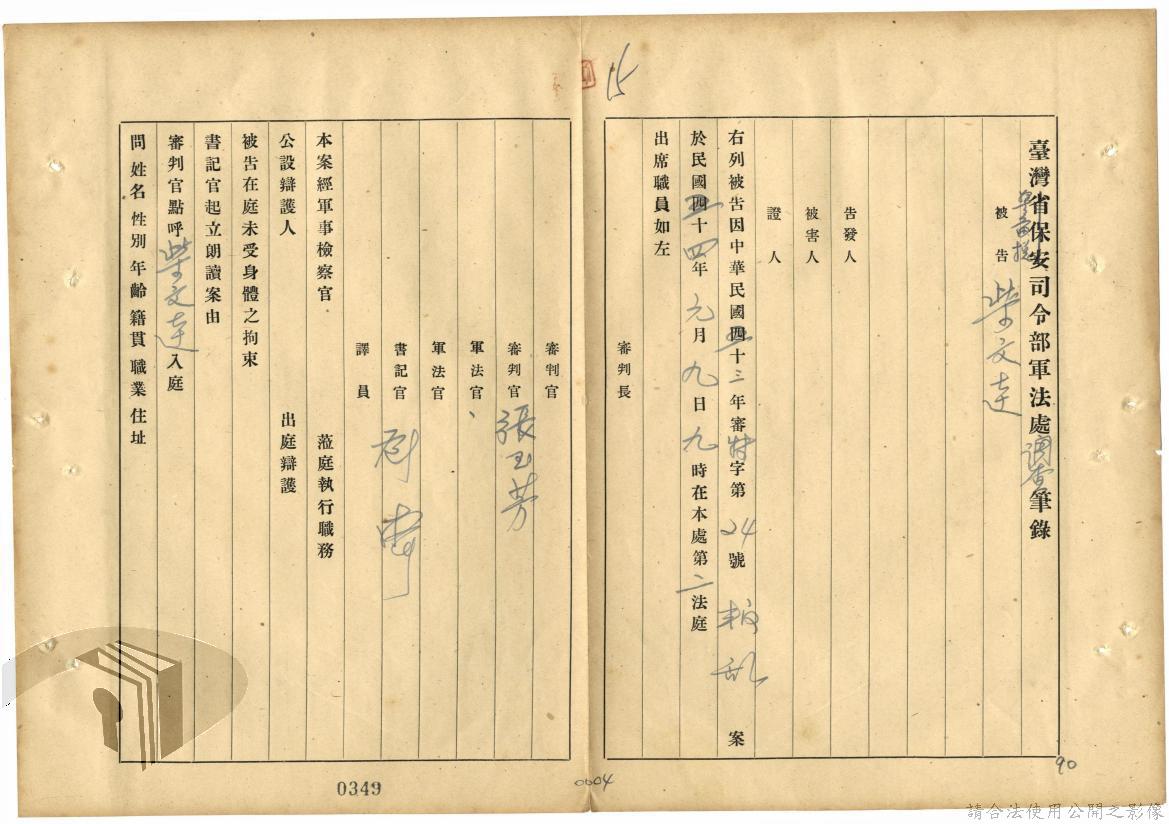 臺灣省保安司令部軍法處調查筆錄
被告 柴文達
告發人
被害人
證人
右列被告因中華民國四五十三年審特字第24號 叛乱 案
於民國四五十四年元月九日九時在本處第二法庭
出席職員如左
審判長
審判官
審判官 張玉芳
軍法官
軍法官
書記官
譯員
本案經軍事檢察官 蒞庭執行職務
公設辯護人 出庭辯護
被告在庭未受身體之拘束
書記官起立朗讀案由
審判官點呼柴文達入庭
問姓名性別年齡籍貫職業住址
15
90
0004
0349
請合法使用公開之影像